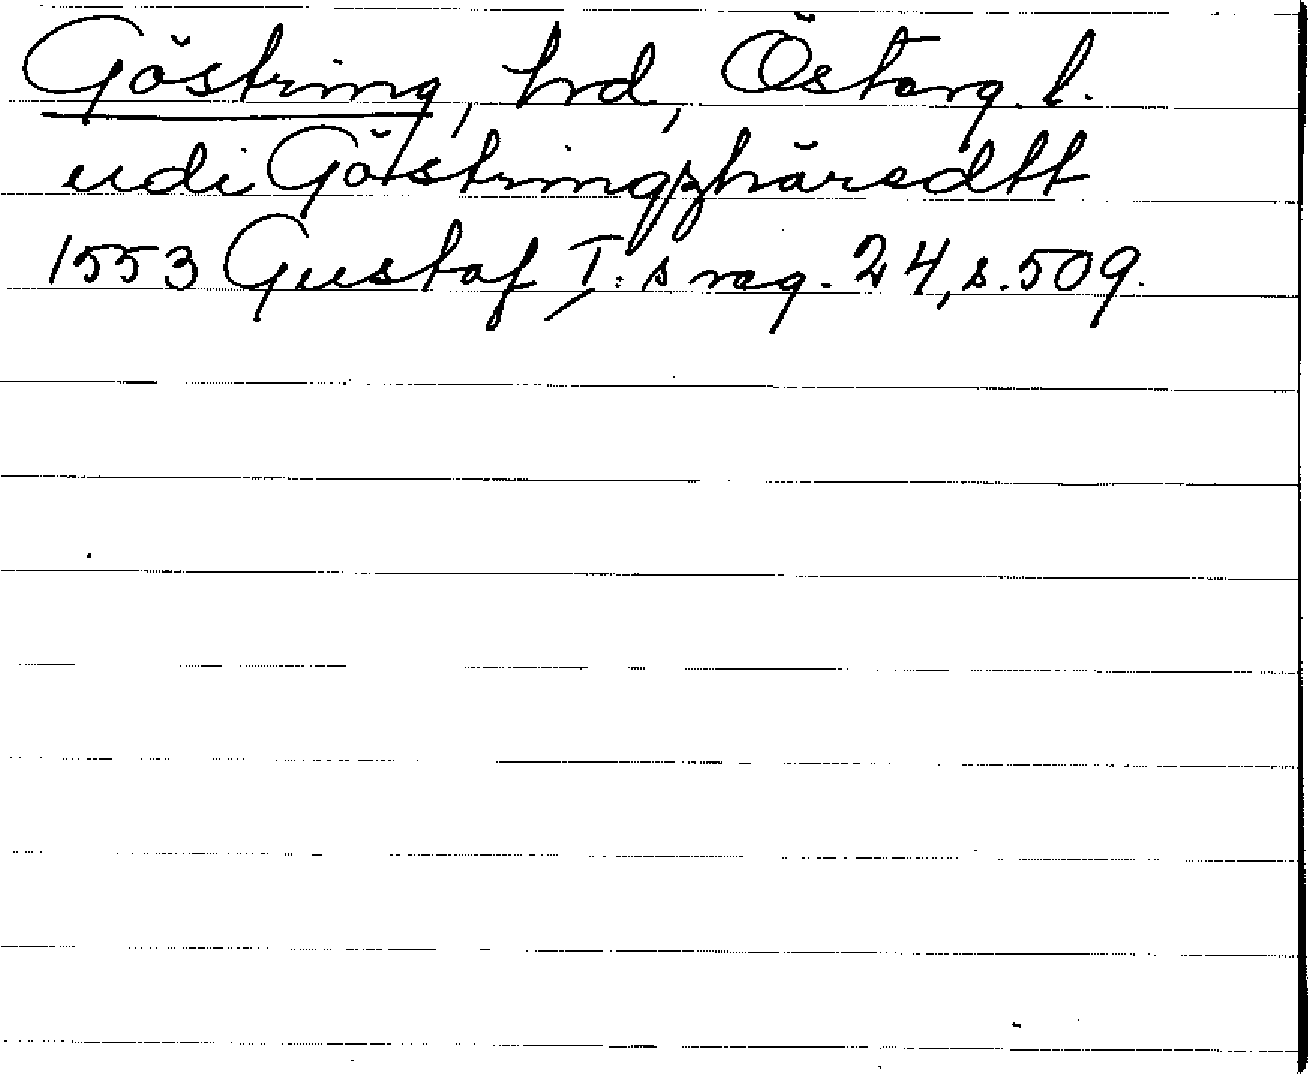 Göstring, hrd, Österg. l.
udi Göstringzhäredtt
1553 Gustaf I:s reg. 24, s. 509.